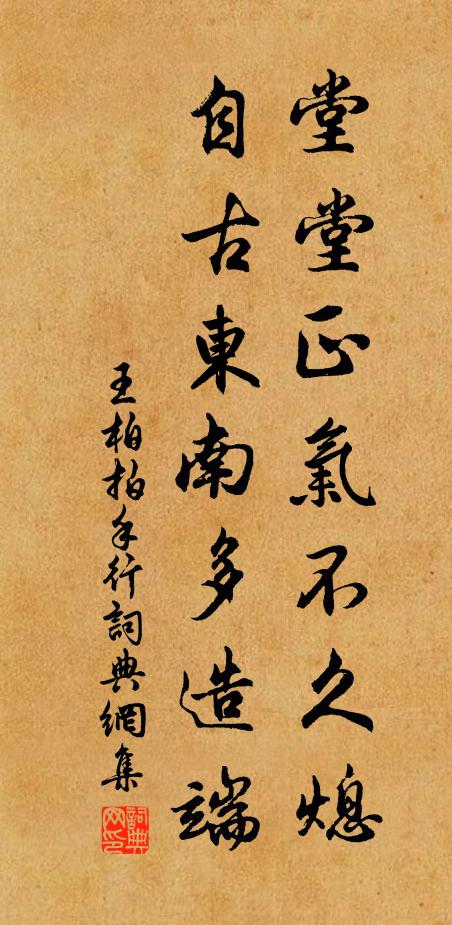 堂堂正氣不久熄
自古東南多造端
王柏拍手行詞典網集
詞典網印